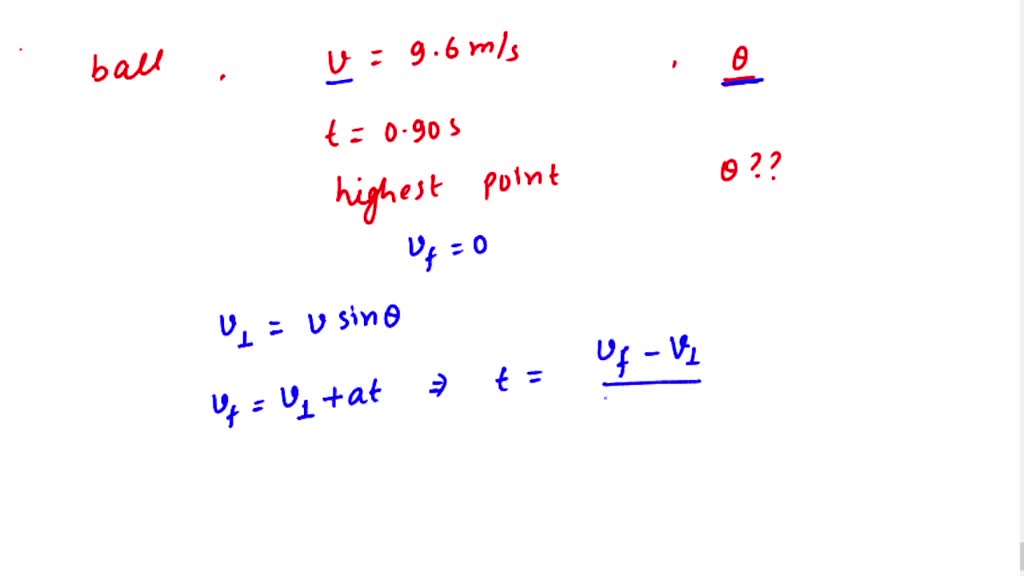 ball . v = 9.6 m/s . θ
t = 0.90 s
highest point θ??
v_f = 0
v_⊥ = v sinθ
v_f = v_⊥ + at ⇒ t = v_f - v_⊥